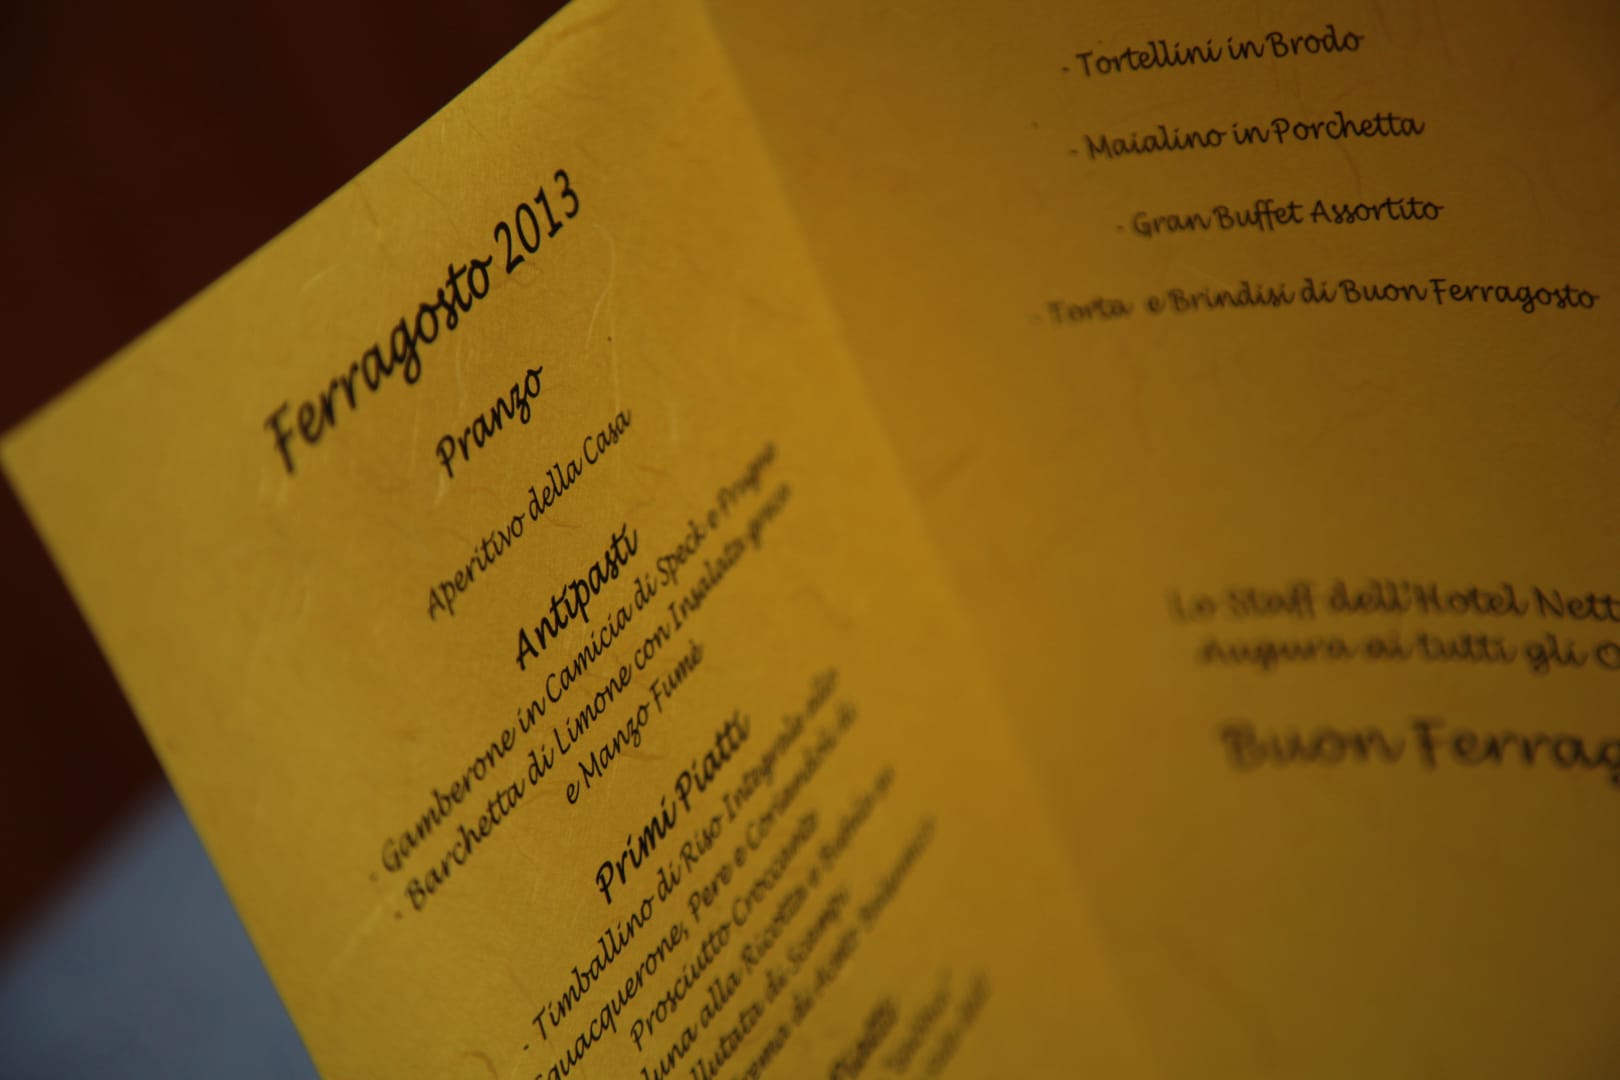 Ferragosto 2013
Pranzo
Aperitivo della Casa
Antipasti
- Gamberone in Camicia di Speck e Prugne
- Barchetta di Limone con Insalata greca
e Manzo Fumè
Primi Piatti
- Timballino di Riso Integrale allo
squacquerone, Pere e Coriandoli di
Prosciutto Croccante
alla Ricotta e
di Scampi
di
- Tortellini in Brodo
- Maialino in Porchetta
- Gran Buffet Assortito
- Torta e Brindisi di Buon Ferragosto
Lo Staff dell'Hotel Nett
Augura ai tutti gli O
Buon Ferrag